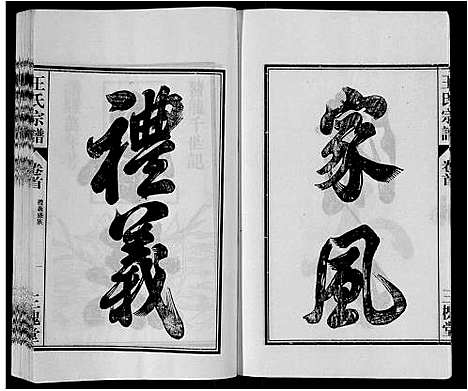 王氏宗譜
卷首
三槐堂
家風
禮義
王氏宗譜
卷首
三槐堂